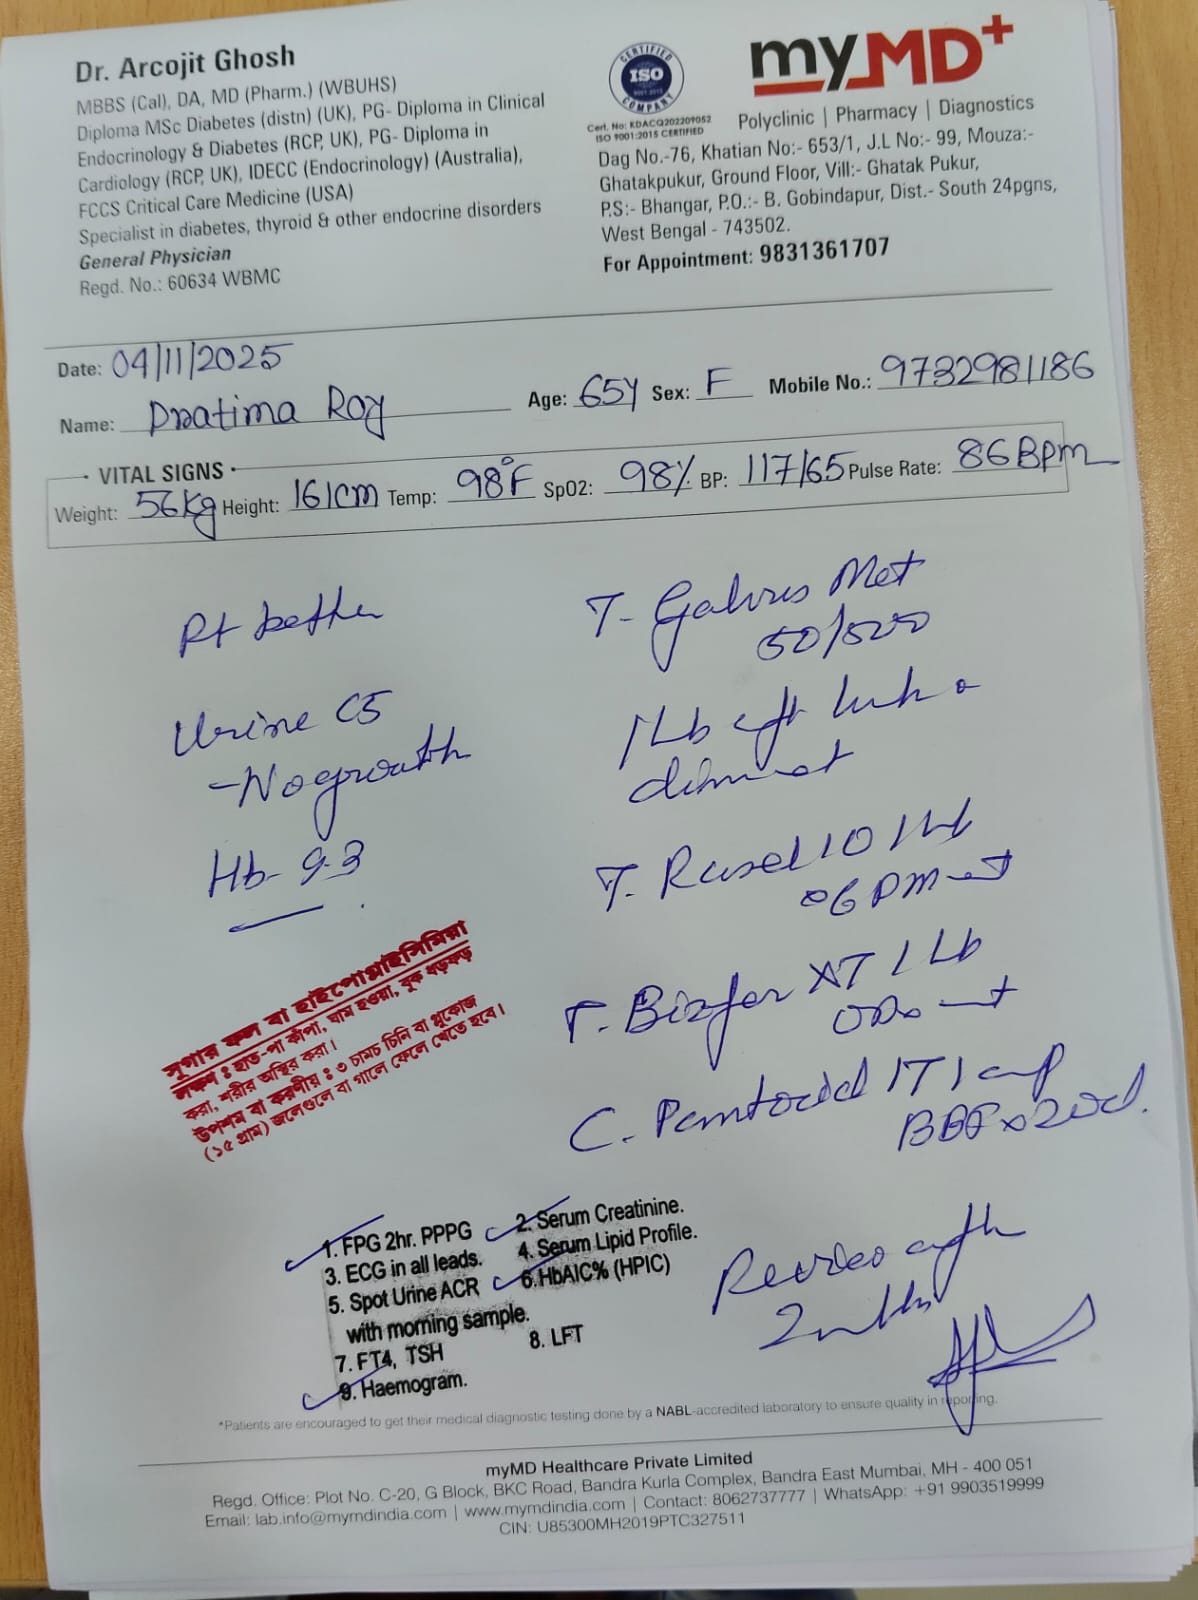 Dr. Arcojit Ghosh
MBBS (Cal), DA, MD (Pharm.) (WBUHS)
Diploma MSc Diabetes (distn) (UK), PG- Diploma in Clinical
Endocrinology & Diabetes (RCP, UK), PG- Diploma in
Cardiology (RCP, UK), IDECC (Endocrinology) (Australia),
FCCS Critical Care Medicine (USA)
Specialist in diabetes, thyroid & other endocrine disorders
General Physician
Regd. No.: 60634 WBMC
CERTIFIED
ISO
9001:2015
COMPANY
Cert. No: KDACQ202209052
ISO 9001:2015 CERTIFIED
myMD+
Polyclinic | Pharmacy | Diagnostics
Dag No.-76, Khatian No:- 653/1, J.L No:- 99, Mouza:-
Ghatakpukur, Ground Floor, Vill:- Ghatak Pukur,
P.S:- Bhangar, P.O.:- B. Gobindapur, Dist.- South 24pgns,
West Bengal - 743502.
For Appointment: 9831361707
Date: 04/11/2025
Name: Pratima Roy Age: 65Y Sex: F Mobile No.: 9732981186
VITAL SIGNS
Weight: 56kg Height: 161cm Temp: 98°F SpO2: 98% BP: 117/65 Pulse Rate: 86Bpm
Pt better
Urine CS
- No growth
Hb- 9.3
T. Galvus Met
50/500
1 tab aft lunch &
dinner
T. Rusel 10 1 tab
6 PM
T. Bizfer XT 1 tab
OD
C. Pantocid IT 1 cap
BBF x 20d.
Review after
2 mths
সুগার ফল বা হাইপোগ্লাইসিমিয়া
লক্ষণ : হাত-পা কাঁপা, ঘাম হওয়া, বুক ধড়ফড়
করা, শরীর অস্থির করা।
উপশম বা করণীয় : ৩ চামচ চিনি বা গ্লুকোজ
(১৫ গ্রাম) জলেগুলে বা গালে ফেলে খেতে হবে।
1. FPG 2hr. PPPG 2. Serum Creatinine.
3. ECG in all leads. 4. Serum Lipid Profile.
5. Spot Urine ACR 6. HbAIC% (HPIC)
with morning sample.
7. FT4, TSH 8. LFT
9. Haemogram.
*Patients are encouraged to get their medical diagnostic testing done by a NABL-accredited laboratory to ensure quality in reporting.
myMD Healthcare Private Limited
Regd. Office: Plot No. C-20, G Block, BKC Road, Bandra Kurla Complex, Bandra East Mumbai, MH - 400 051
Email: lab.info@mymdindia.com | www.mymdindia.com | Contact: 8062737777 | WhatsApp: +91 9903519999
CIN: U85300MH2019PTC327511